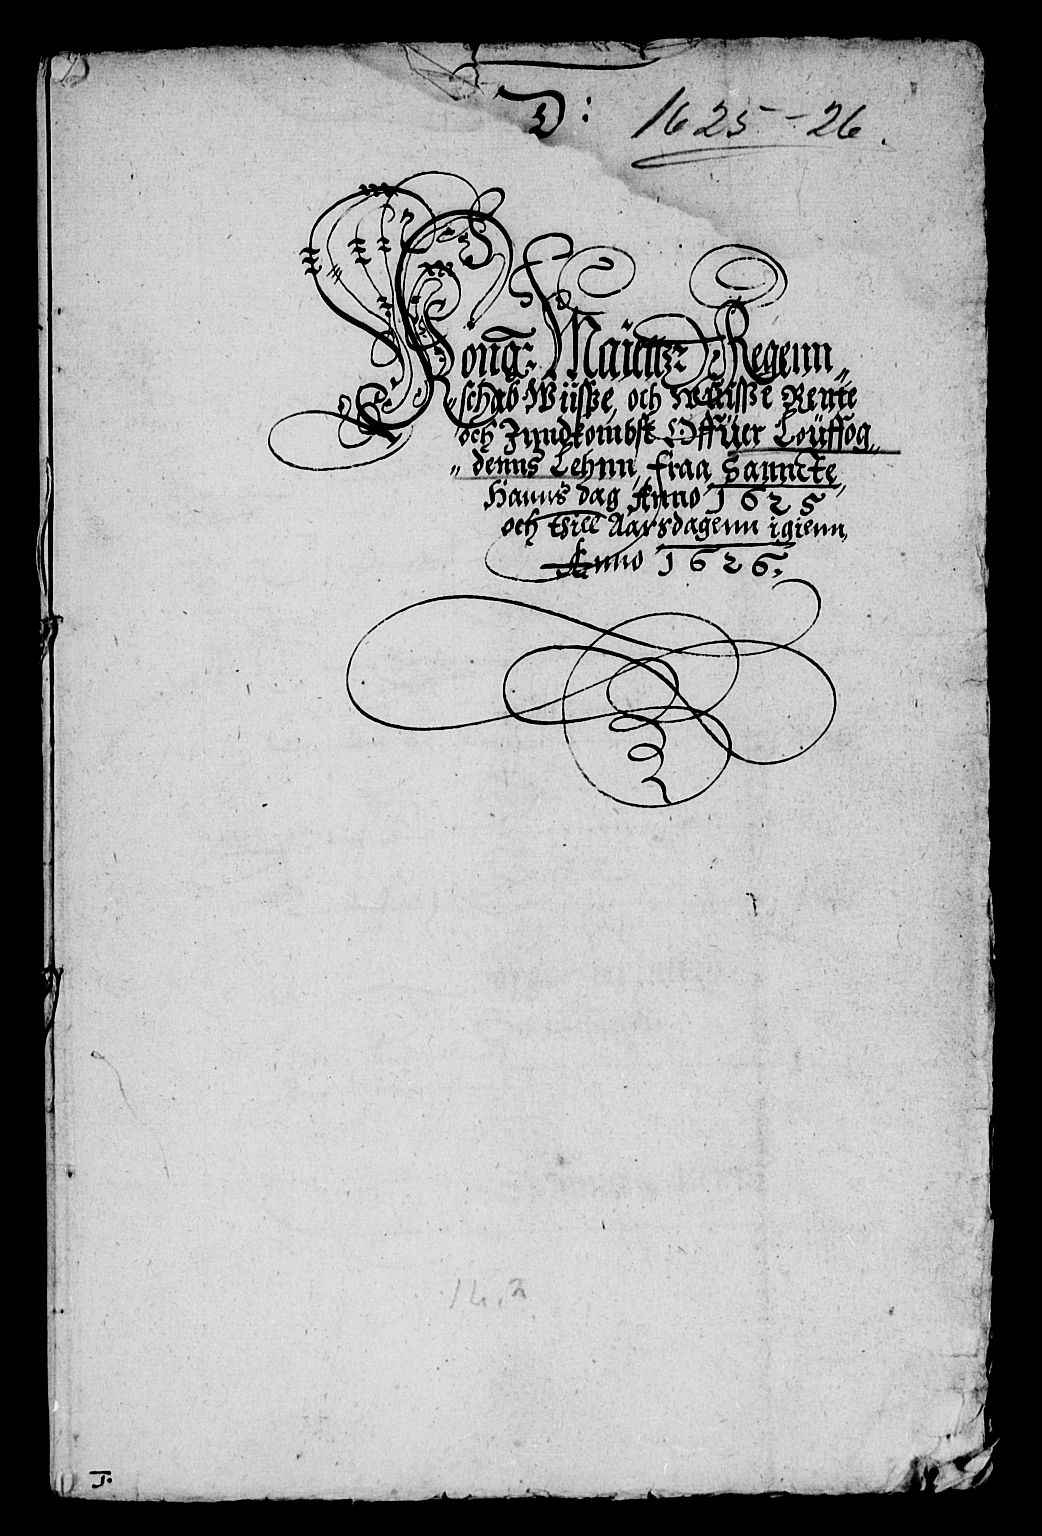 D: 1625-26.
Kong: Maÿttz: Regenn„
„schab Wiisße, och Wuisße Rente
och Inndkombst Offüer Loüffog„
„denns Lehnn, fraa Sanncte,
Hanns dag Anno 1625
och thill Aarsdagenn igienn,
Anno 1626.
14.2
I.